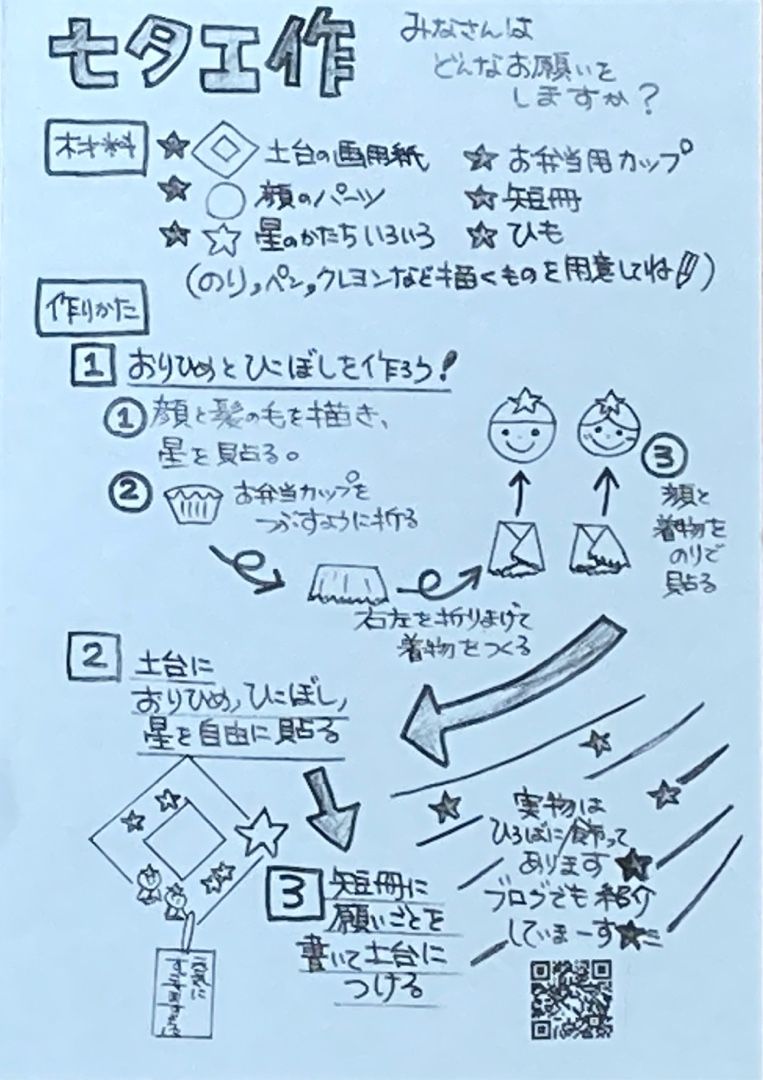 七夕工作
みなさんは
どんなお願いを
しますか？
材料
土台の画用紙
お弁当用カップ
顔のパーツ
短冊
星のかたちいろいろ
ひも
(のり,ペン,クレヨンなど描くものを用意してね)
作りかた
1 おりひめとひこぼしを作ろう!
① 顔と髪の毛を描き、
星を貼る。
② お弁当カップを
つぶすように折る
右左を折りまげて
着物をつくる
③
顔と
着物を
のりで
貼る
2 土台に
おりひめ,ひこぼし,
星を自由に貼る
3 短冊に
願いごとを
書いて土台に
つける
実物は
ひろばに飾って
あります
ブログでも紹介
していまーす
元気に